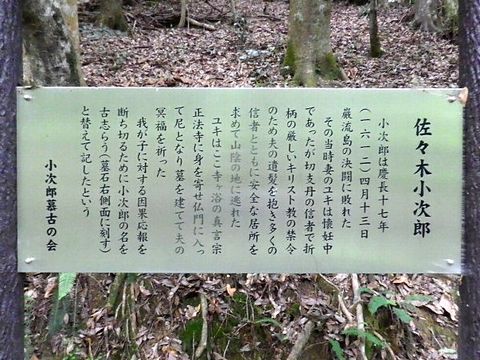 佐々木小次郎
小次郎は慶長十七年
(一六一二)四月十三日
巌流島の決闘に敗れた
その当時妻のユキは懐妊中
であったが切支丹の信者で折
柄の厳しいキリスト教の禁令
のため夫の遺髪を抱き多くの
信者とともに安全な居所を
求めて山陰の地に逃れた
ユキはここ寺ヶ浴の真言宗
正法寺に身を寄せ仏門に入っ
て尼となり墓を建てて夫の
冥福を祈った
我が子に対する因果応報を
断ち切るために小次郎の名を
古志らう(墓石右側面に刻す)
と替えて記したという
小次郎墓古の会